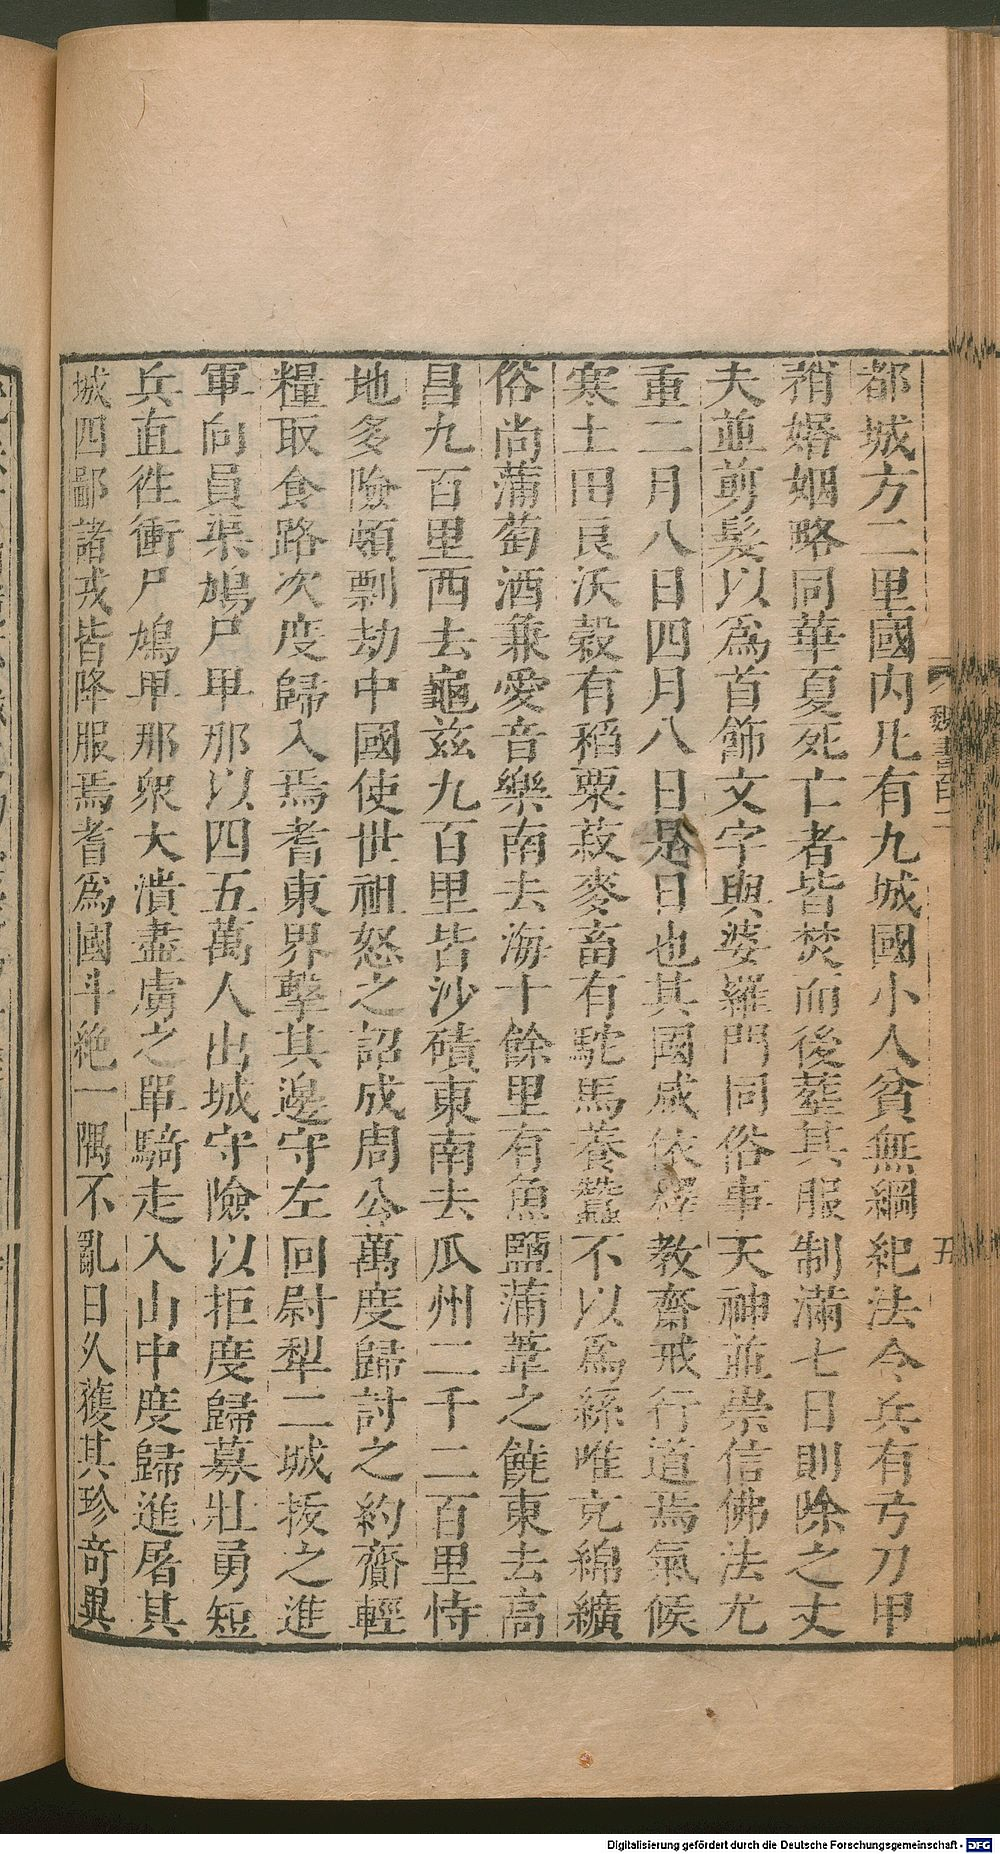 都城方二里國内凡有九城國小人貧無綱紀法令兵有弓刀甲
矟婚姻略同華夏死亡者皆焚而後葬其服制滿七日則除之丈
夫並剪髮以爲首飾文字與婆羅門同俗事天神並崇信佛法尤
重二月八日四月八日是日也其國咸依釋教齋戒行道焉氣候
寒土田良沃穀有稻粟菽麥畜有駝馬養蠶不以爲絲唯充綿纊
俗尚蒲萄酒兼愛音樂南去海十餘里有魚鹽蒲葦之饒東去高
昌九百里西去龜茲九百里皆沙磧東南去瓜州二千二百里恃
地多險頗剽劫中國使世祖怒之詔成周公萬度歸討之約齎輕
糧取食路次度歸入焉耆東界擊其邊守左回尉犁二城拔之進
軍向員渠鳩尸畢那以四五萬人出城守險以拒度歸募壯勇短
兵直徃衝尸鳩畢那衆大潰盡虜之單騎走入山中度歸進屠其
城四鄙諸戎皆降服焉耆爲國斗絕一隅不亂日久獲其珍奇異
魏書百二
五
Digitalisierung gefördert durch die Deutsche Forschungsgemeinschaft - DFG